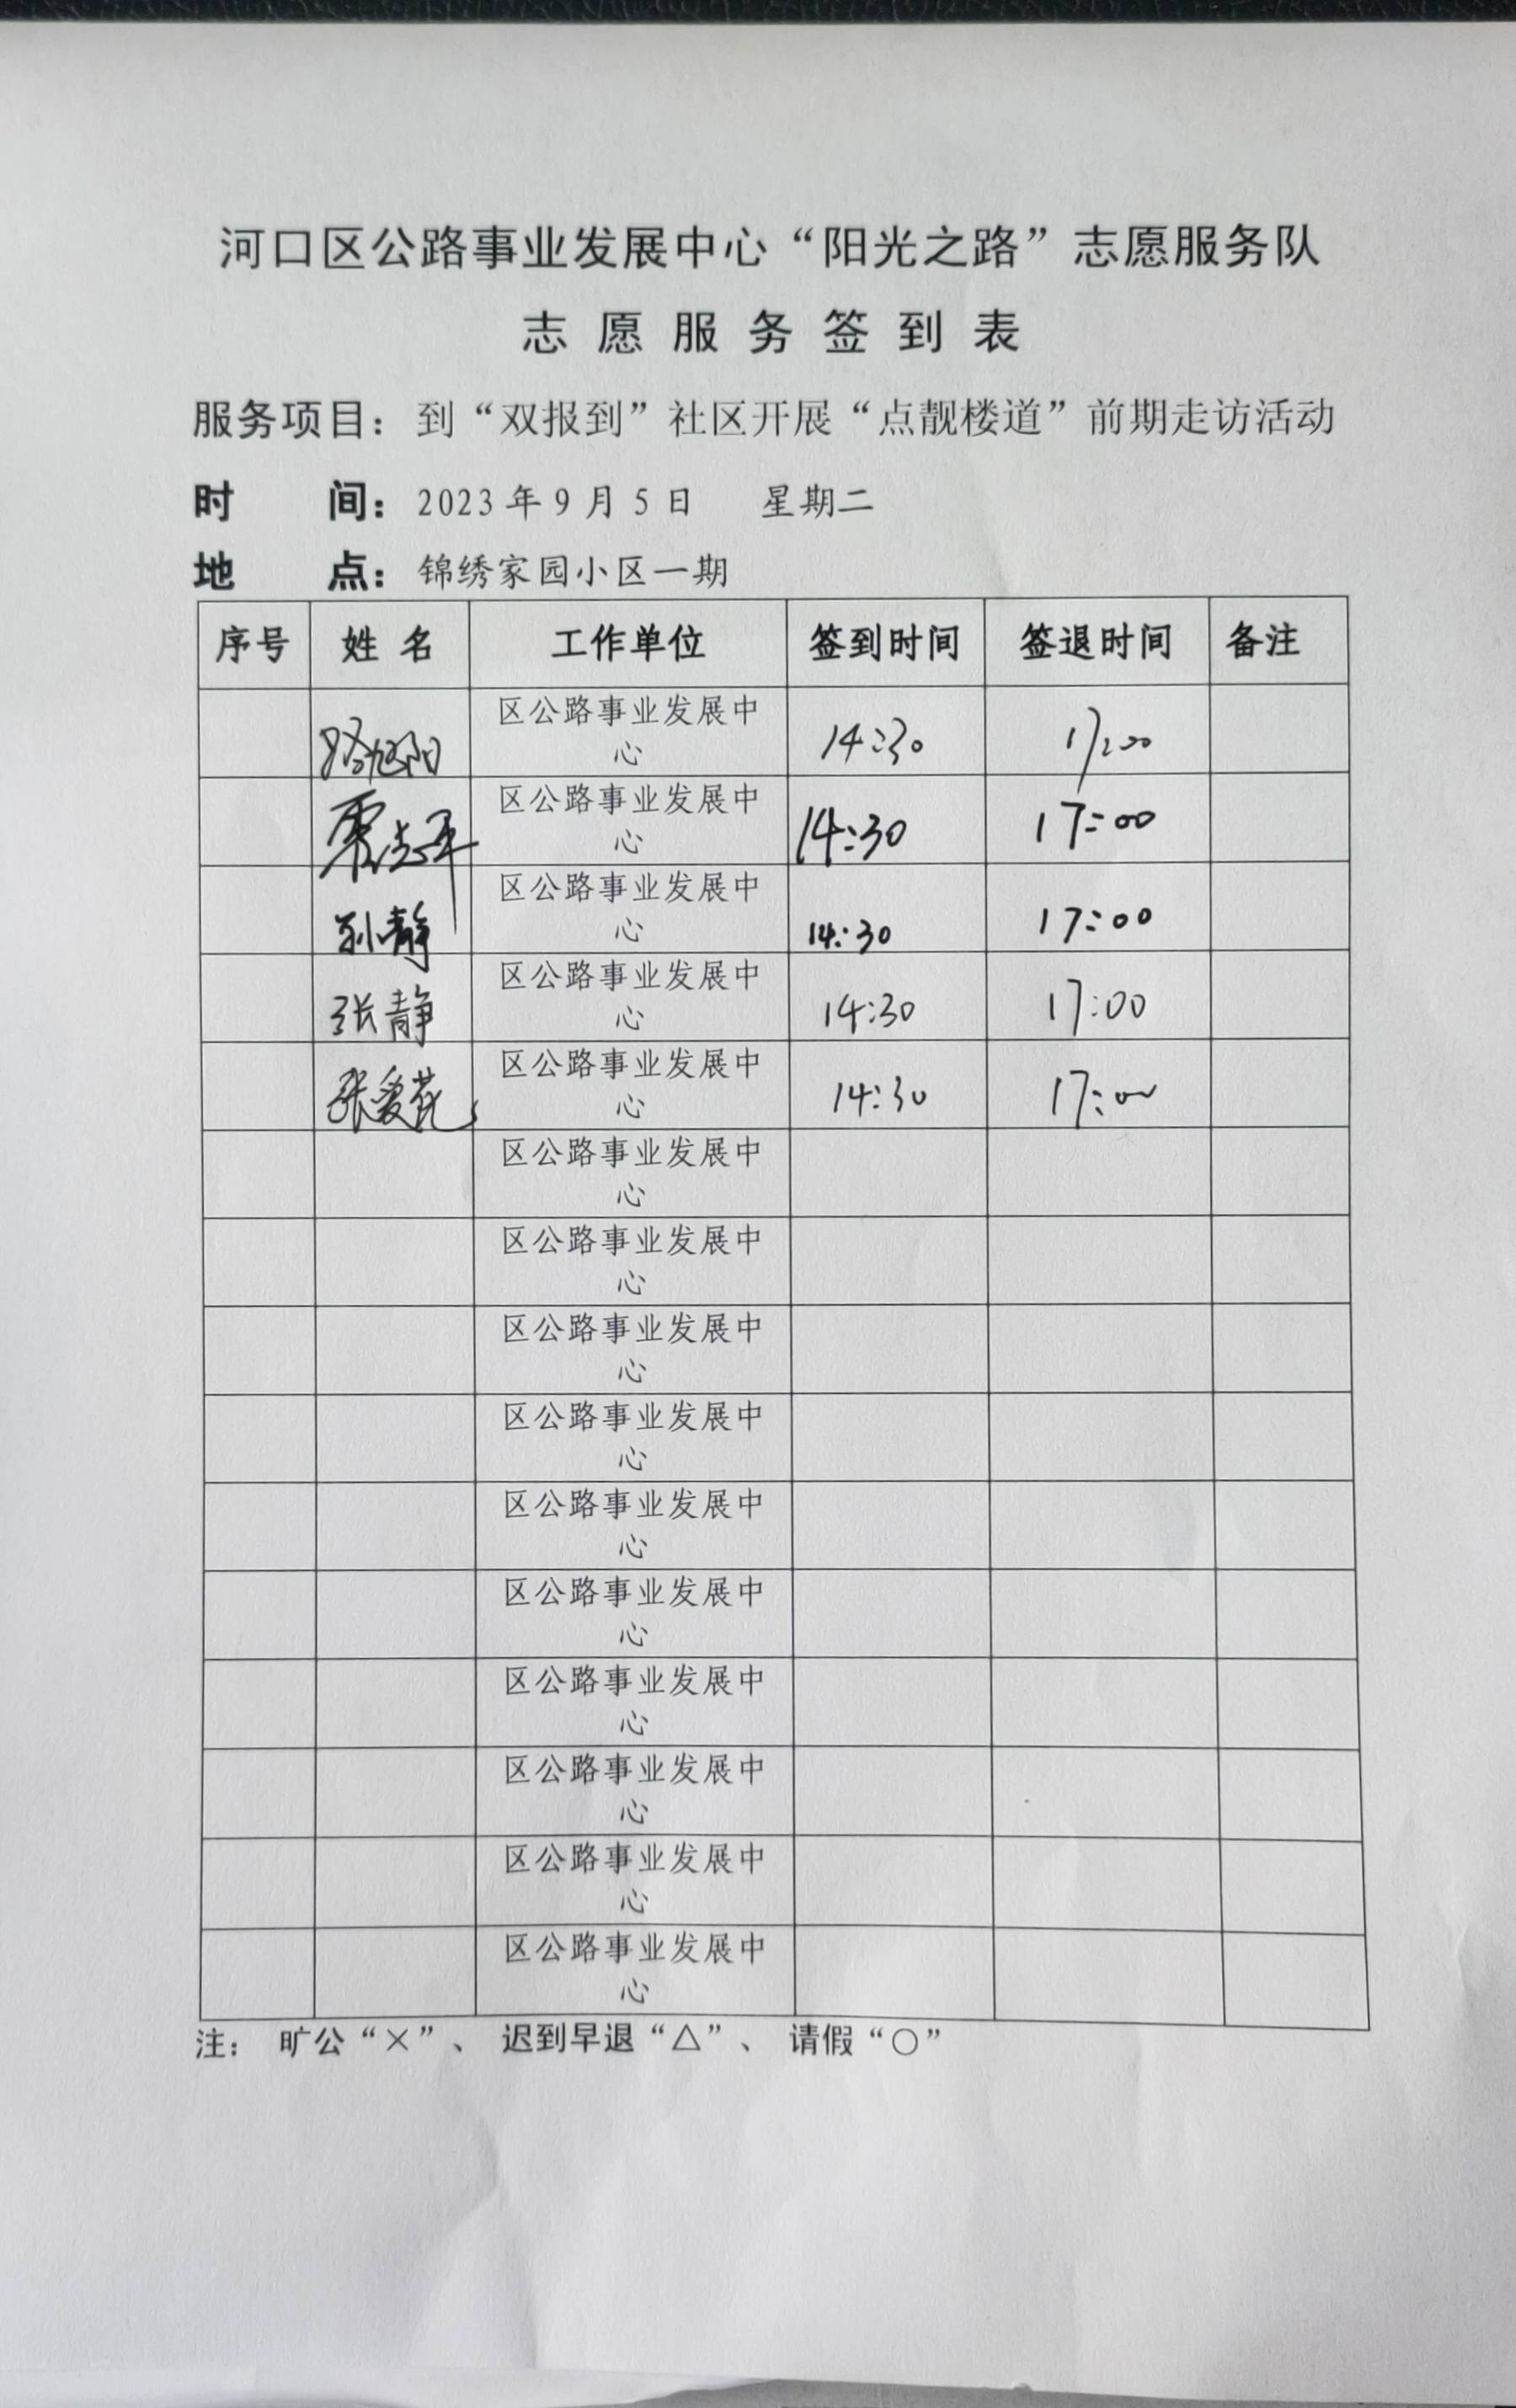 河口区公路事业发展中心“阳光之路”志愿服务队
志愿服务签到表
服务项目：到“双报到”社区开展“点靓楼道”前期走访活动
时 间：2023年9月5日 星期二
地 点：锦绣家园小区一期
序号 姓名 工作单位 签到时间 签退时间 备注
路旭阳 区公路事业发展中心 14:30 17:00
志军 区公路事业发展中心 14:30 17:00
孙静 区公路事业发展中心 14:30 17:00
张静 区公路事业发展中心 14:30 17:00
张爱花 区公路事业发展中心 14:30 17:00
区公路事业发展中心
区公路事业发展中心
区公路事业发展中心
区公路事业发展中心
区公路事业发展中心
区公路事业发展中心
区公路事业发展中心
区公路事业发展中心
区公路事业发展中心
区公路事业发展中心
注： 旷公“×”、 迟到早退“△”、 请假“○”